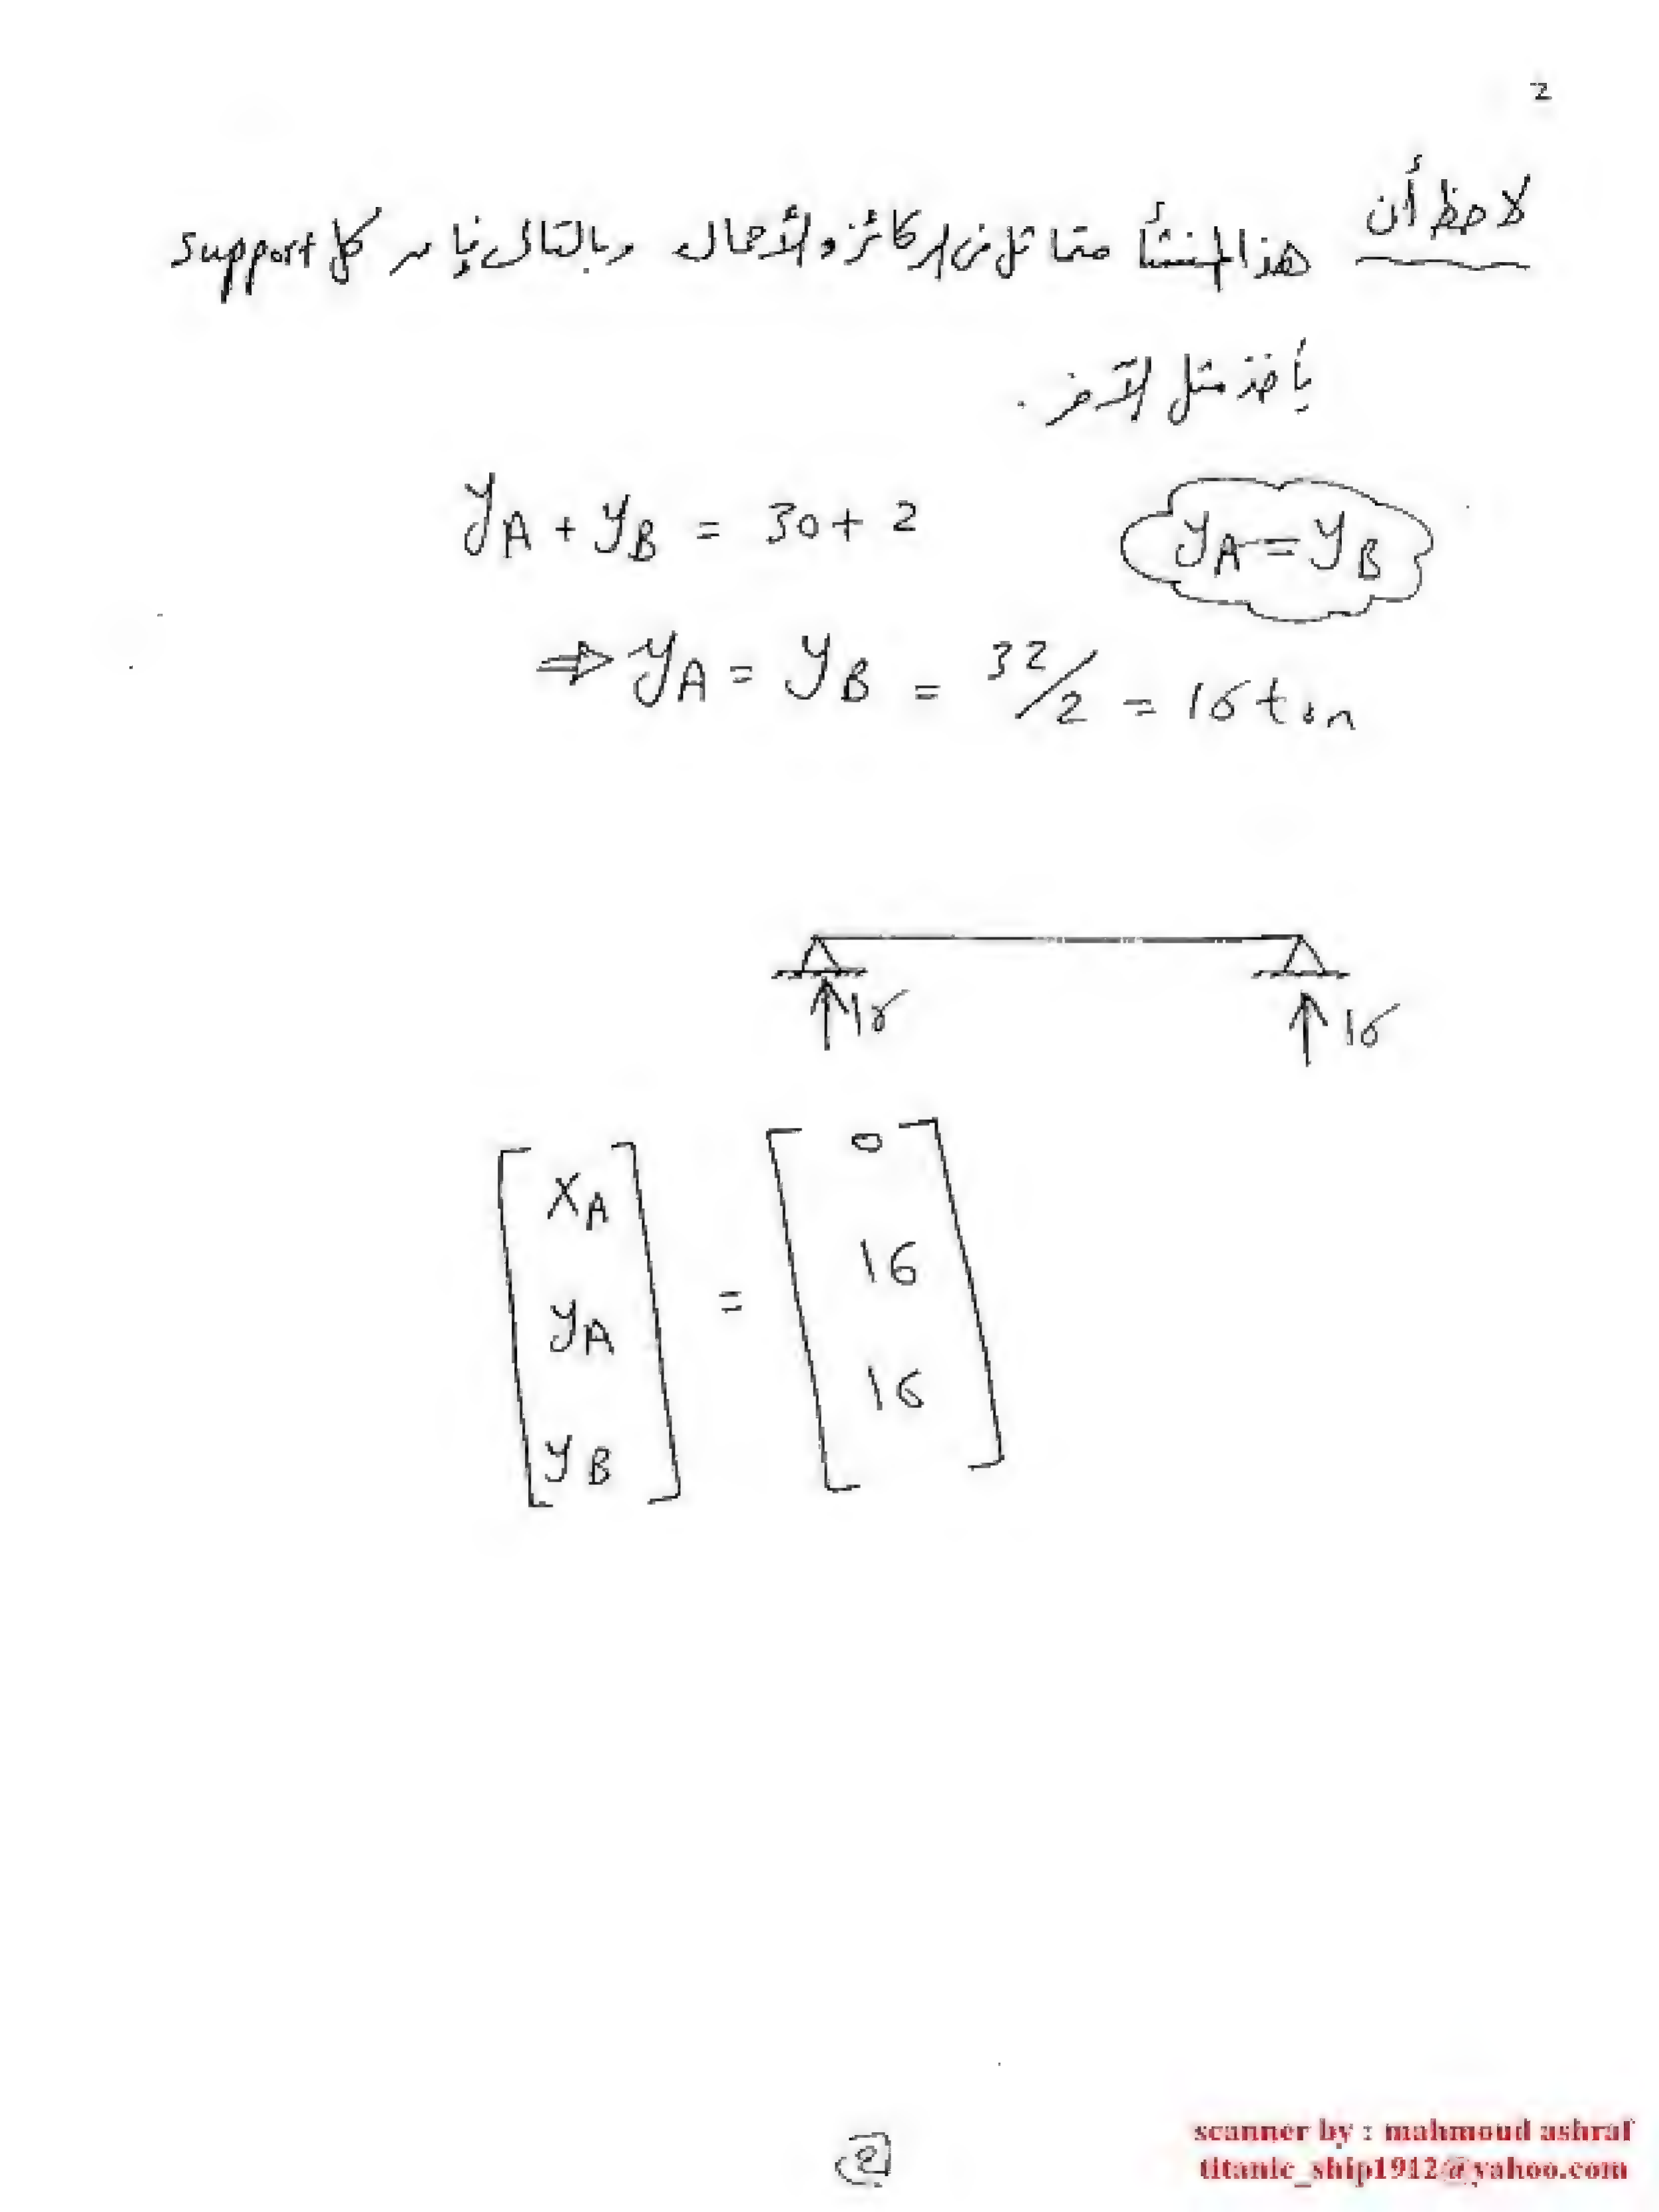 2
لاحظ أن
هذا المنشأ متماثل من الركائز والأحمال وبالتالى فإن كل support
يأخذ مثل الآخر .
yA + yB = 30 + 2
yA = yB
⇒ yA = yB = 32/2 = 16 ton
16
16
[ xA ] [ 0 ]
[ yA ] = [ 16 ]
[ yB ] [ 16 ]
2
scanner by : mahmoud ashraf
titanic_ship1912@yahoo.com